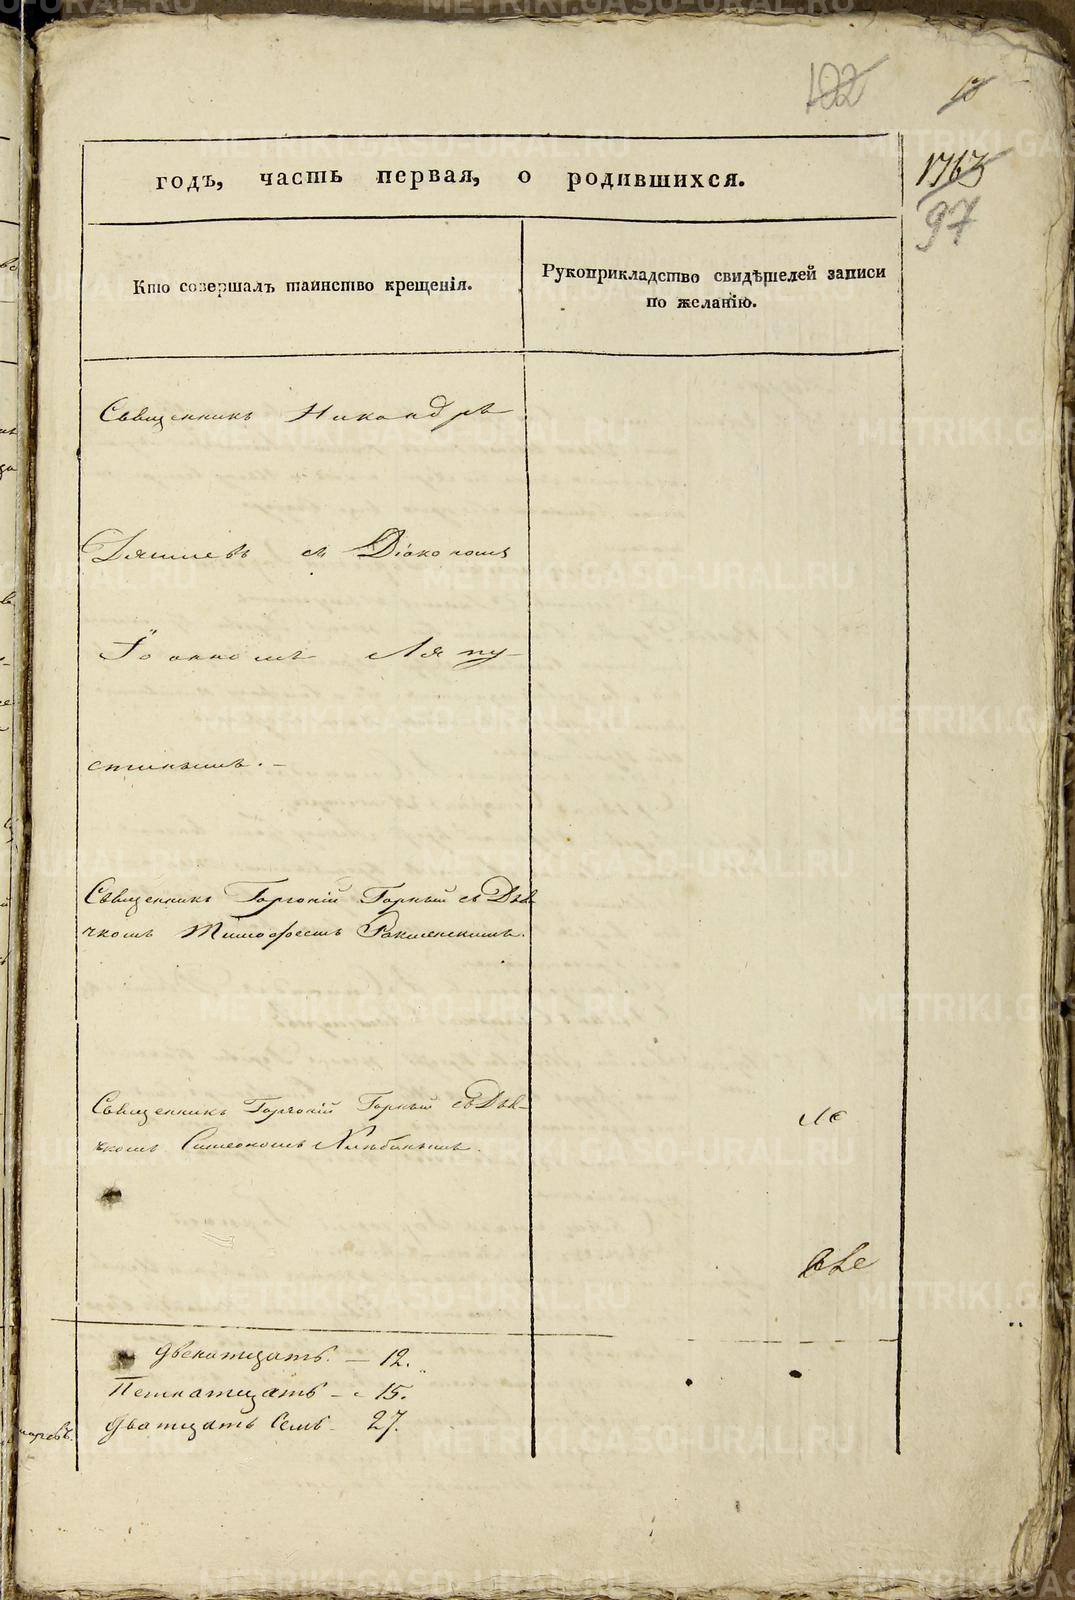 102
13
1763
97
годъ, часть первая, о родившихся.
Кто совершалъ таинство крещенія.
Рукоприкладство свидѣтелей записи
по желанію.
Священникъ Никандръ
съ Діакономъ
Іоанномъ Ляпу-
стинымъ. –
Священникъ Горгоній Горный съ Дья
чкомъ Тимофеемъ
Священникъ Горгоній Горный съ Дья-
чкомъ Симеономъ Хлѣбинымъ.
двенатцать. – 12.
Петнатцать – 15.
дватцать Семь – 27.
METRIKI.GASO-URAL.RU